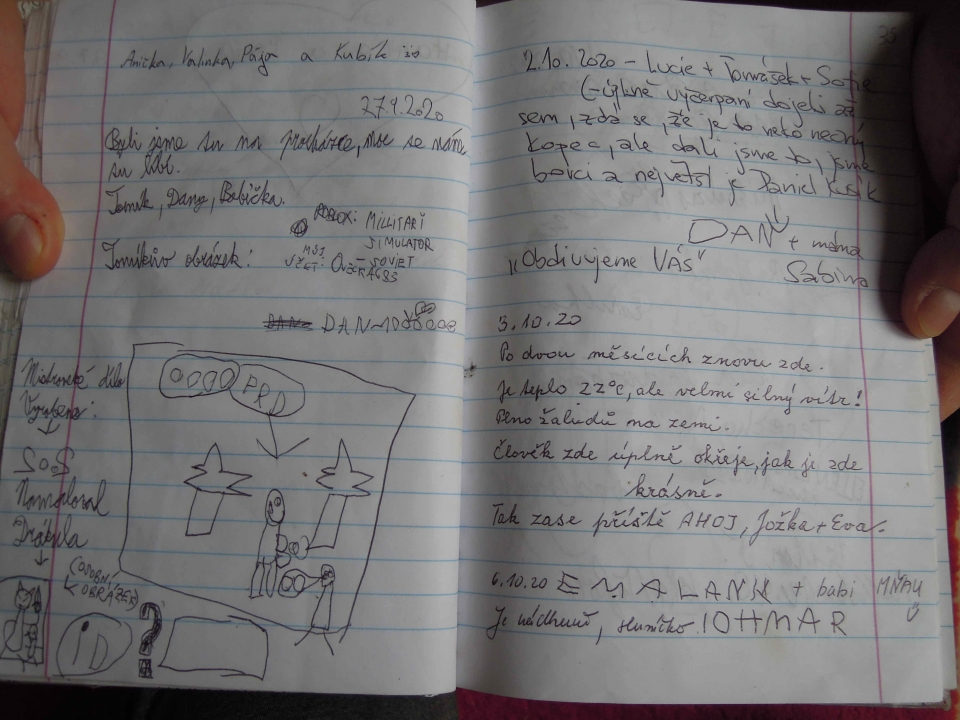 Anička, Valinka, Pája a Kubík
27.9.2020
Byli jsme tu na procházce, moc se nám
tu líbí.
Tomík, Dany, Babička.
ROBLOX: MILLITARI
SIMULATOR
MŮJ
SOVIET
UČET:
Tomíkivo obrázek:
DAN
Mistrovské dílo
Vyrobeno:
Namaloval
Drákula
(OSOBNÍ
OBRÁZEK)
iD
?
36
2.10.2020 - Lucie + Tomášek + Sofie
(-úplně vyčerpaní dojeli až
sem, zdá se, že je to nekonečný
kopec, ale dali jsme to, jsme
borci a největší je Daniel
DAN + máma
"Obdivujeme VÁS" Sabina
3.10.20
Po dvou měsících znovu zde.
Je teplo 22°C, ale velmi silný vítr!
Plno žaludů na zemi.
Člověk zde úplně okřeje, jak je zde
krásně.
Tak zase příště AHOJ, Jožka + Eva.
6.10.20 EMALANK + babi MŇAU
Je nádherně, sluníčko OTTMAR